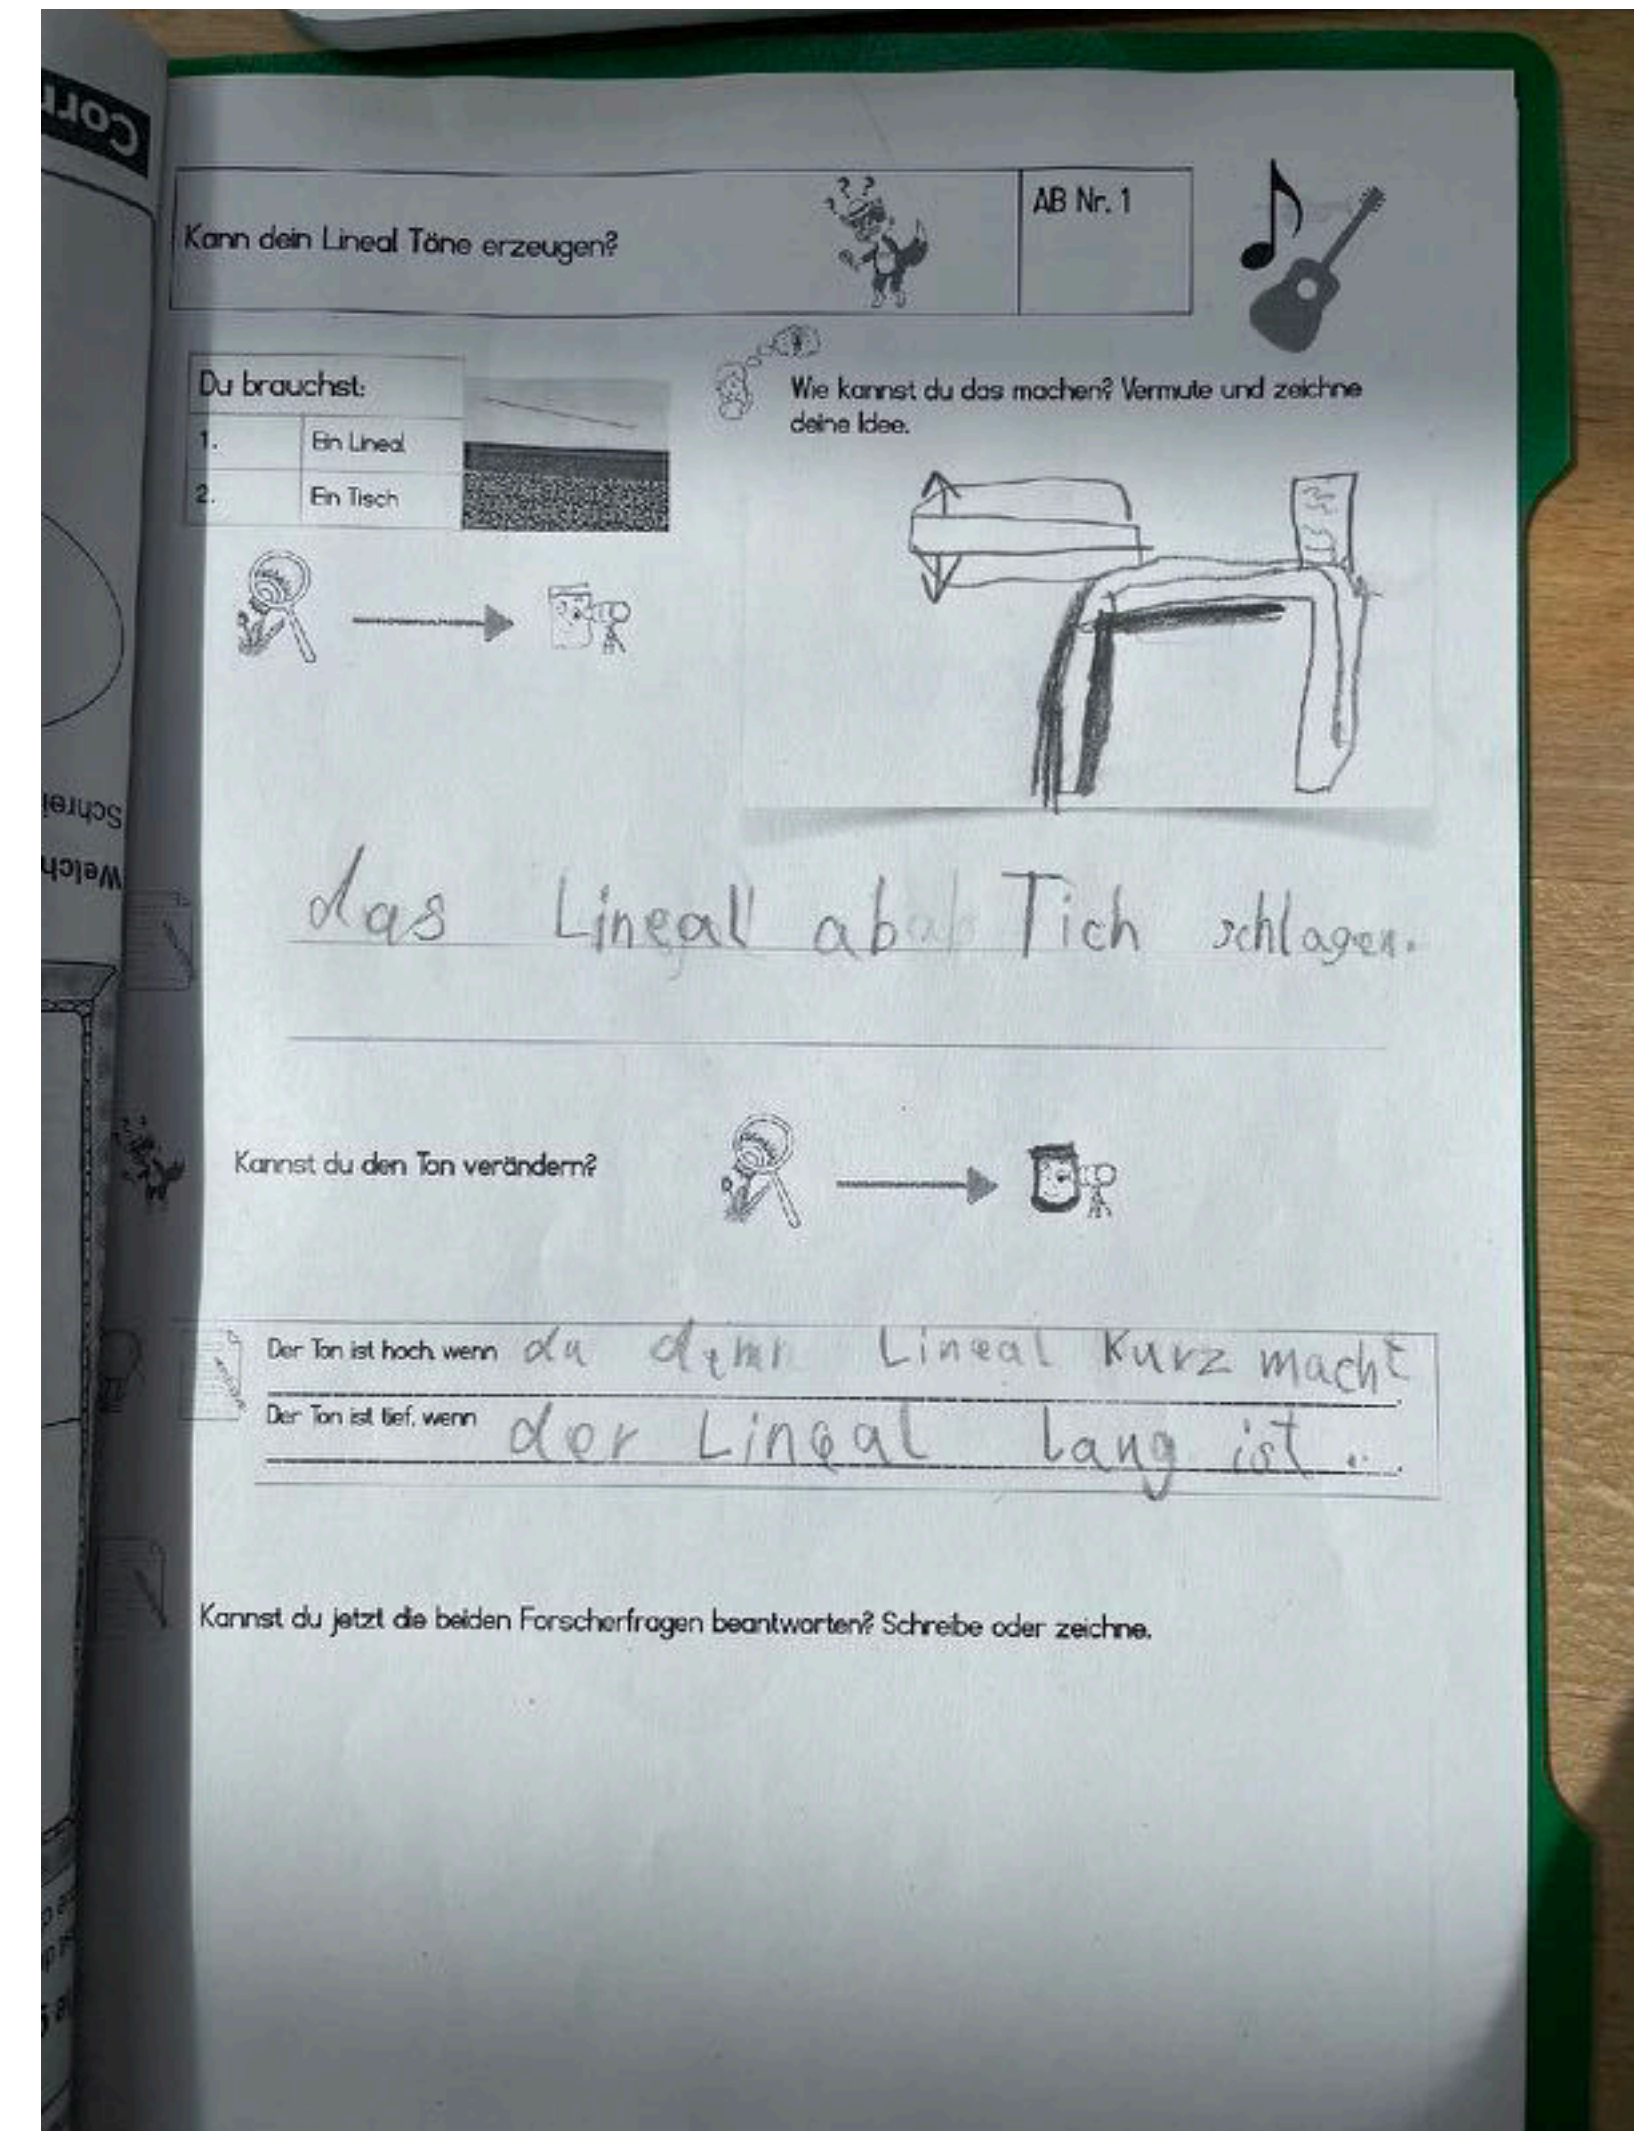 Kann dein Lineal Töne erzeugen?
AB Nr. 1
Du brauchst:
1. Ein Lineal
2. Ein Tisch
Wie kannst du das machen? Vermute und zeichne
deine Idee.
das Lineall ab Tich schlagen.
Kannst du den Ton verändern?
Der Ton ist hoch, wenn du Lineal kurz macht
Der Ton ist tief, wenn der Lineal lang ist.
Kannst du jetzt die beiden Forscherfragen beantworten? Schreibe oder zeichne.
Schrei
Welch